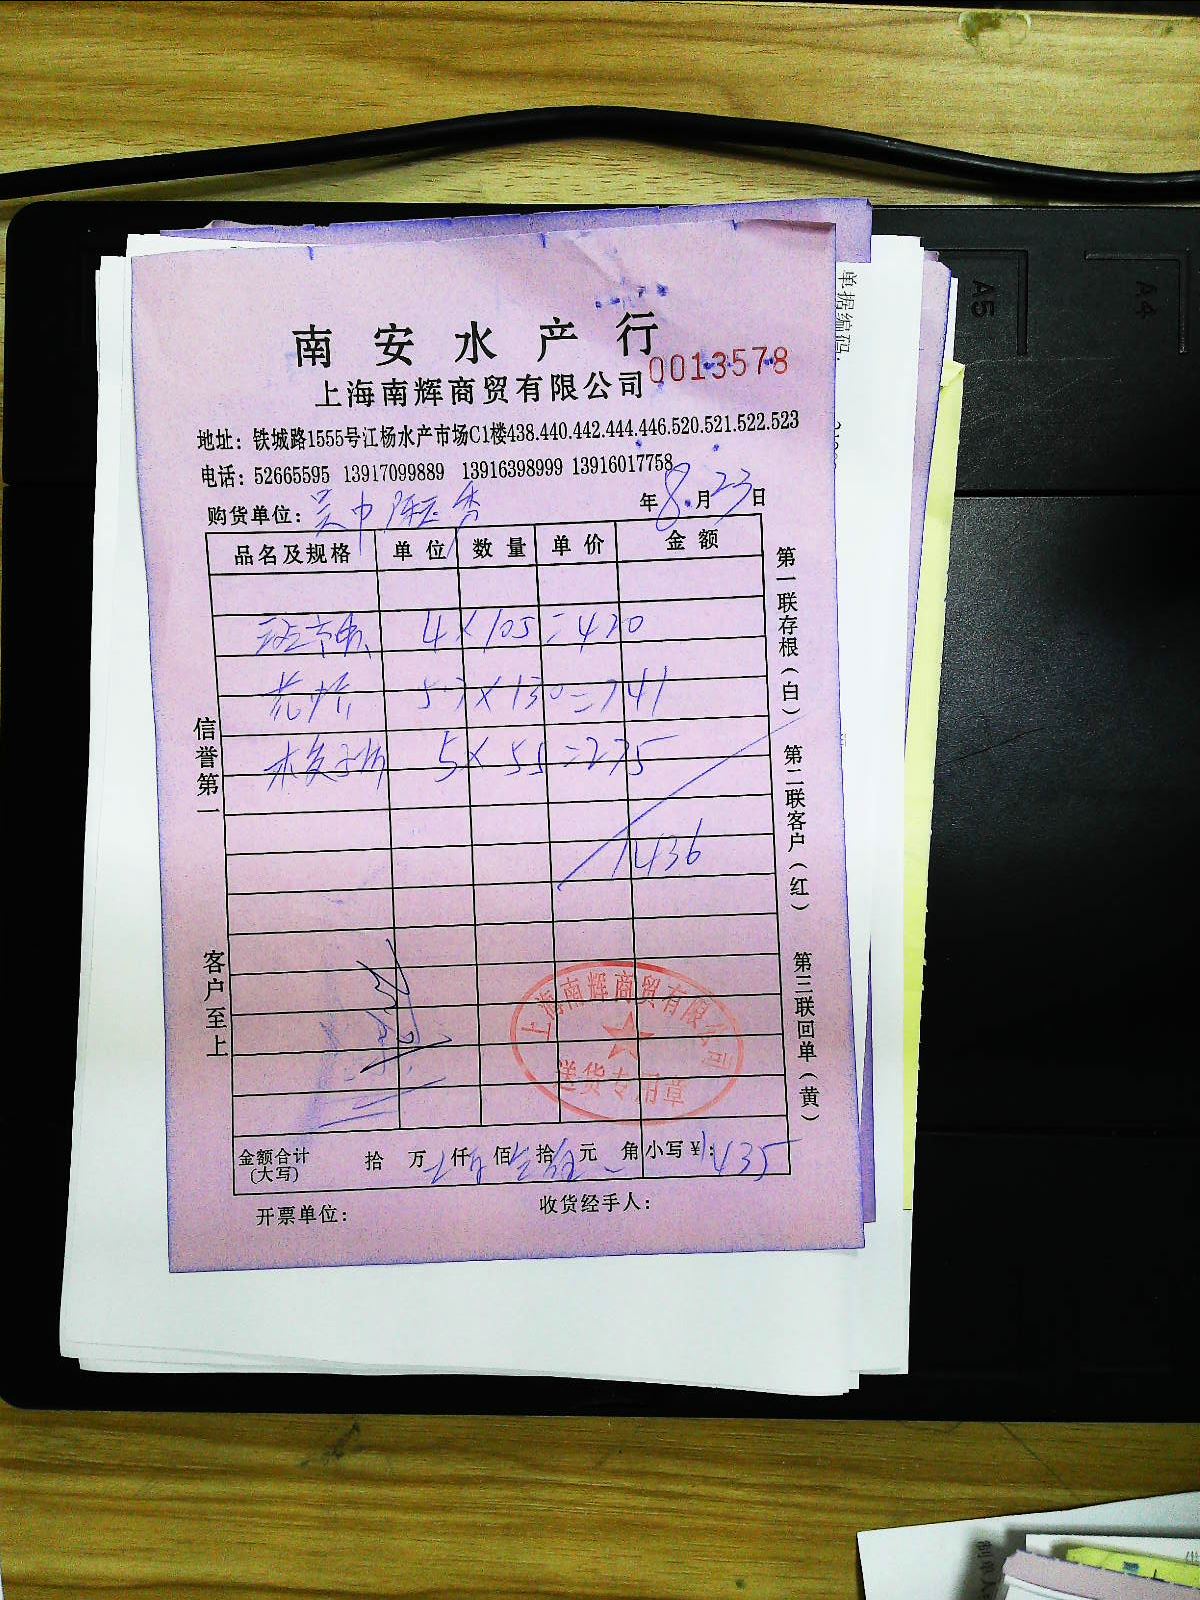 南安水产行
上海南辉商贸有限公司 0013578
地址：铁城路1555号江杨水产市场C1楼438.440.442.444.446.520.521.522.523
电话：52665595 13917099889 13916398999 13916017758
购货单位：吴中 秀 年8月23日
品名及规格 单位 数量 单价 金额
4×105=420
5.7×130=741
5×55=275
1436
信誉第一
客户至上
第一联存根（白）
第二联客户（红）
第三联回单（黄）
上海南辉商贸有限公司
送货专用章
金额合计 拾 万 仟 佰 拾 元 角 小写￥：1435
（大写）
开票单位：
收货经手人：
单据编码
A5
A4
制单人